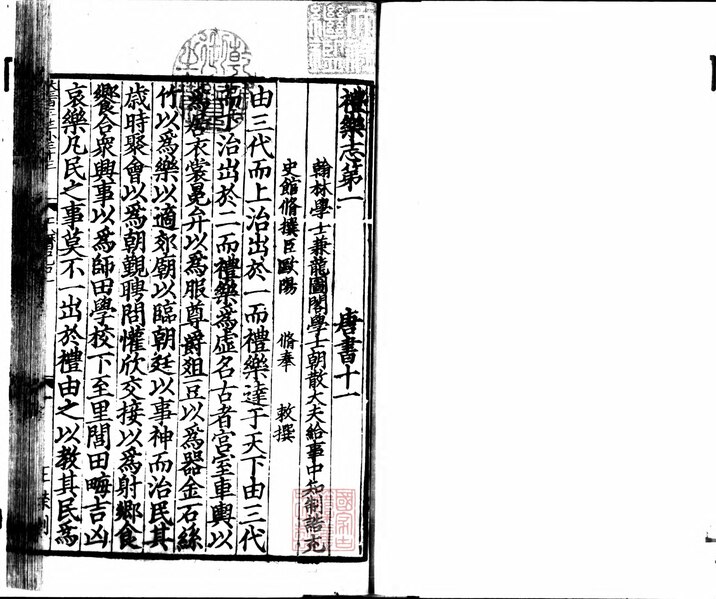 禮樂志第一 唐書十一
翰林學士兼龍圖閣學士朝散大夫給事中知制誥充
史館脩撰臣歐陽 脩奉 敕撰
由三代而上治出於一而禮樂達于天下由三代
而下治出於二而禮樂爲虛名古者宮室車輿以
爲居衣裳冕弁以爲服尊爵俎豆以爲器金石絲
竹以爲樂以適郊廟以臨朝廷以事神而治民其
歲時聚會以爲朝覲聘問懽欣交接以爲射鄉食
饗合衆興事以爲師田學校下至里閭田畮吉凶
哀樂凡民之事莫不一出於禮由之以教其民爲